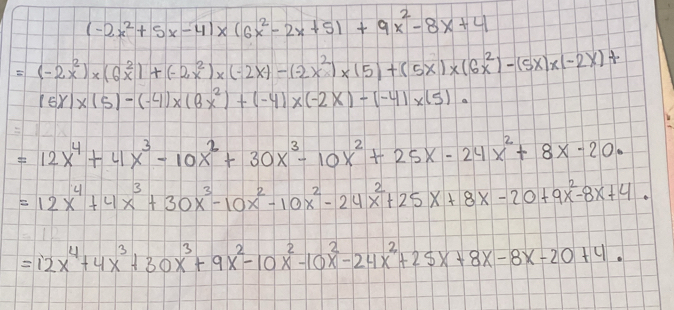 (-2x²+5x-4)x(6x²-2x+5) + 9x²-8x+4
= (-2x²)x(6x²)+(-2x²)x(-2x)-(2x²)x(5)+(5x)x(6x²)-(5x)x(-2x)+
(5x)x(5)-(-4)x(6x²)+(-4)x(-2x)-(-4)x(5).
= 12x⁴+4x³-10x²+30x³-10x²+25x-24x²+8x-20.
= 12x⁴+4x³+30x³-10x²-10x²-24x²+25x+8x-20+9x²-8x+4.
= 12x⁴+4x³+30x³+9x²-10x²-10x²-24x²+25x+8x-8x-20+4.